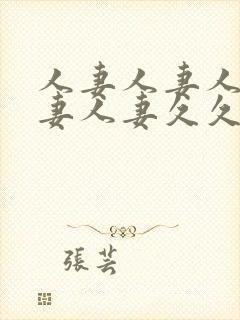 人妻人妻人
妻人妻欠欠
張芸